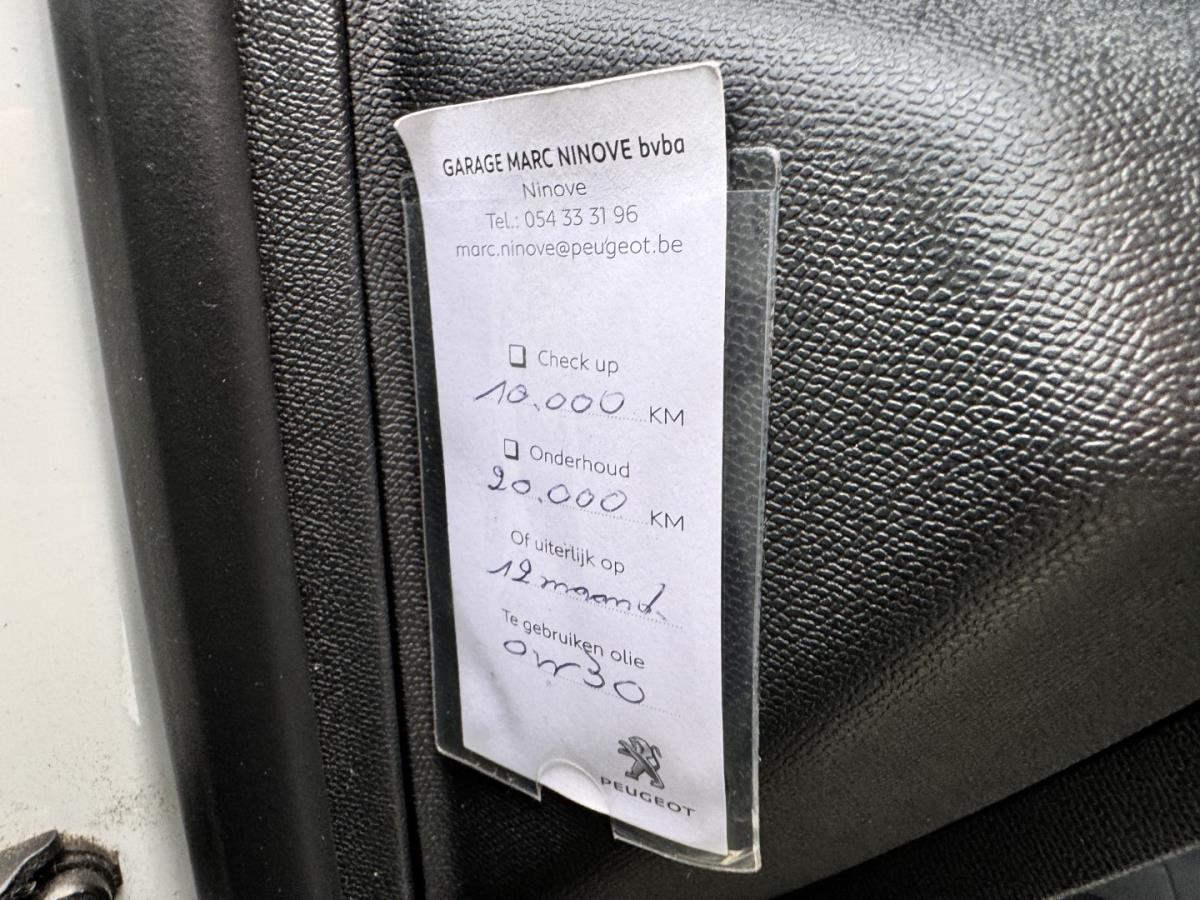 GARAGE MARC NINOVE bvba
Ninove
Tel.: 054 33 31 96
marc.ninove@peugeot.be
Check up
10.000 KM
Onderhoud
20.000 KM
Of uiterlijk op
12 maand.
Te gebruiken olie
0W30
PEUGEOT